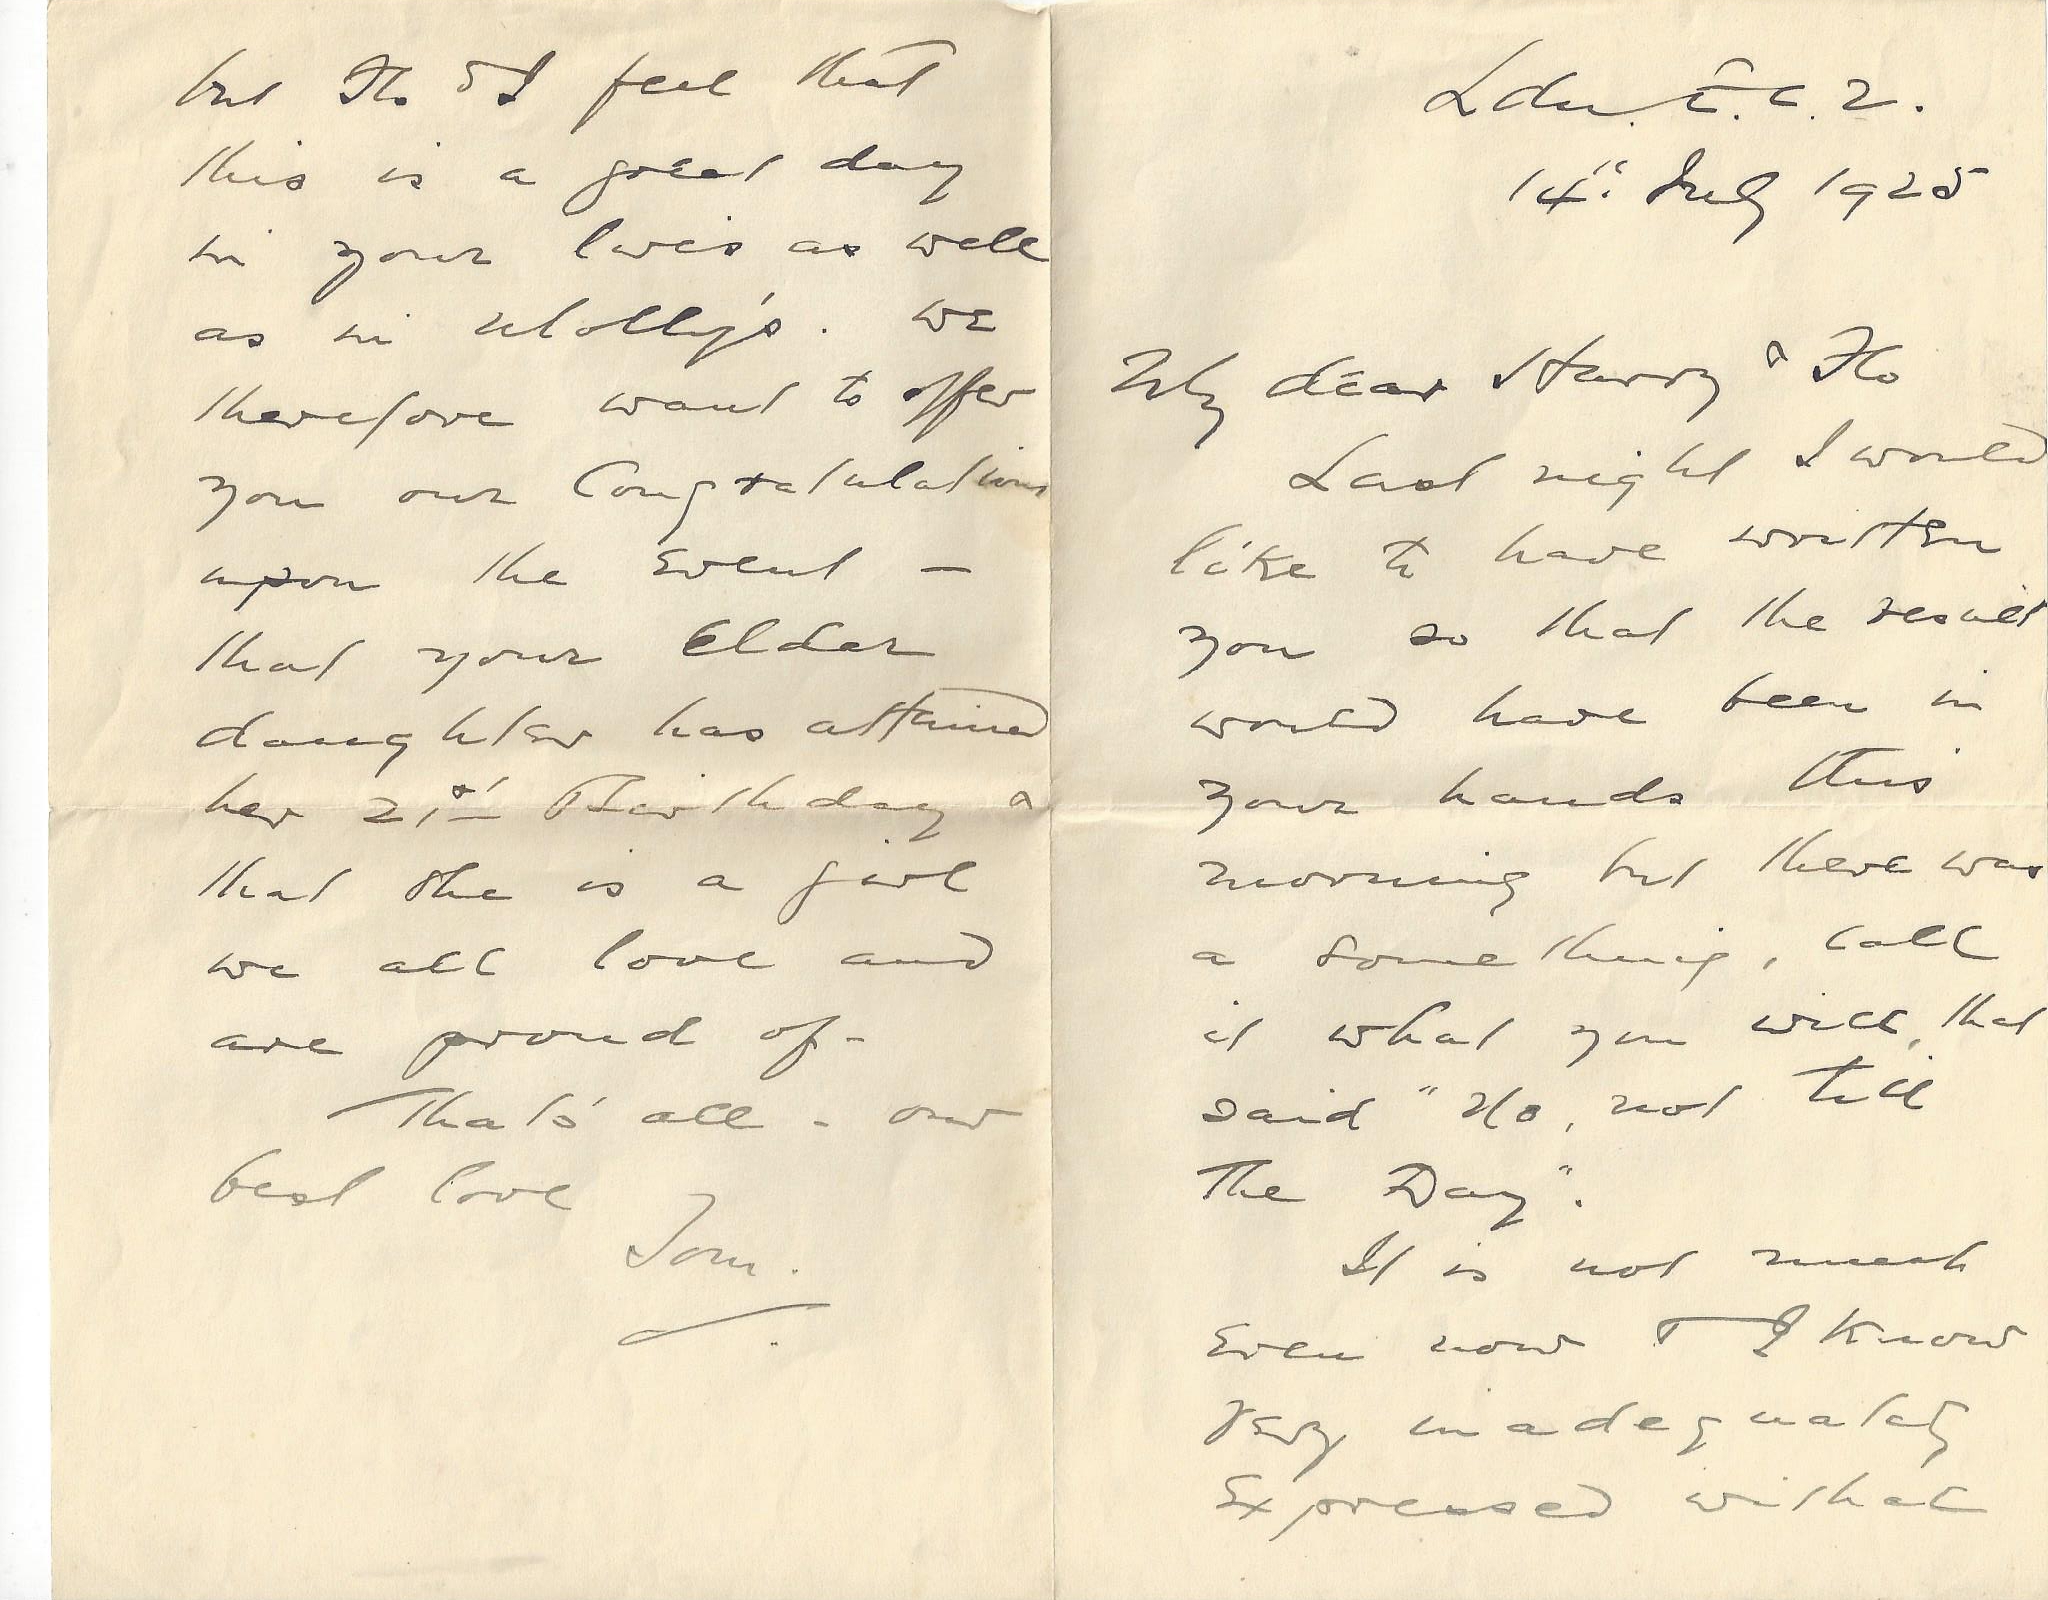 Ldn. E.C.2.
14": July 1925
My dear Harry & Flo
Last night I would
like to have written
you so that the result
would have been in
your hands this
morning but there was
a something, call
it what you will, that
said "No, not till
The Day".
It is not much
Even now & I know
very inadequately
Expressed withal
but Flo & I feel that
this is a great day
in your lives as well
as in Molly's. We
therefore want to offer
you our Congratulations
upon the Event –
that your Elder
daughter has attained
her 21st Birthday &
that she is a girl
we all love and
are proud of –
That's all – our
best love
Tom.